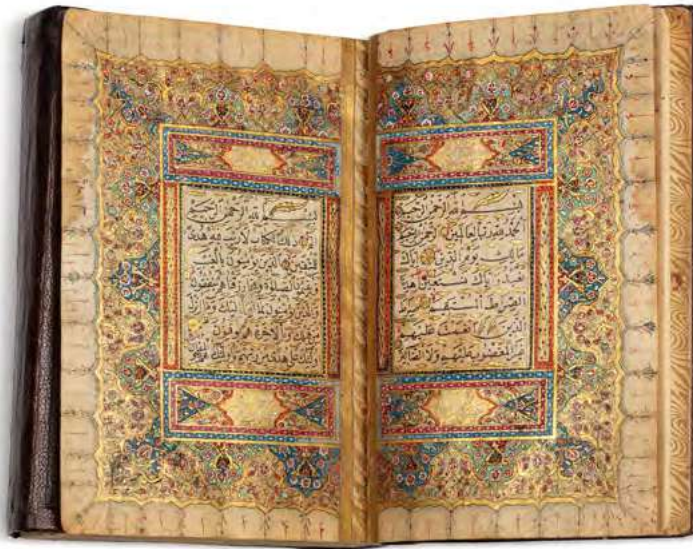 بسم الله الرحمن الرحيم
الحمد لله رب العالمين الرحمن الرحيم
مالك يوم الدين اياك
نعبد واياك نستعين اهدنا
الصراط المستقيم صراط
الذين انعمت عليهم
غير المغضوب عليهم ولا الضالين
بسم الله الرحمن الرحيم
الم ذلك الكتاب لا ريب فيه هدى
للمتقين الذين يؤمنون بالغيب
ويقيمون الصلاة ومما رزقناهم ينفقون
والذين يؤمنون بما انزل اليك وما انزل
من قبلك وبالاخرة هم يوقنون
اولئك على هدى من ربهم واولئك هم المفلحون